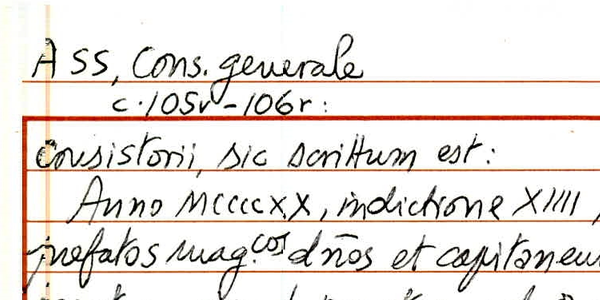 ASS, Cons. generale
c. 105v - 106r:
Consistorii, sic scrittum est:
Anno MCCCCXX, indictione XIIII,
prefatos mag.cos dños et capitaneu